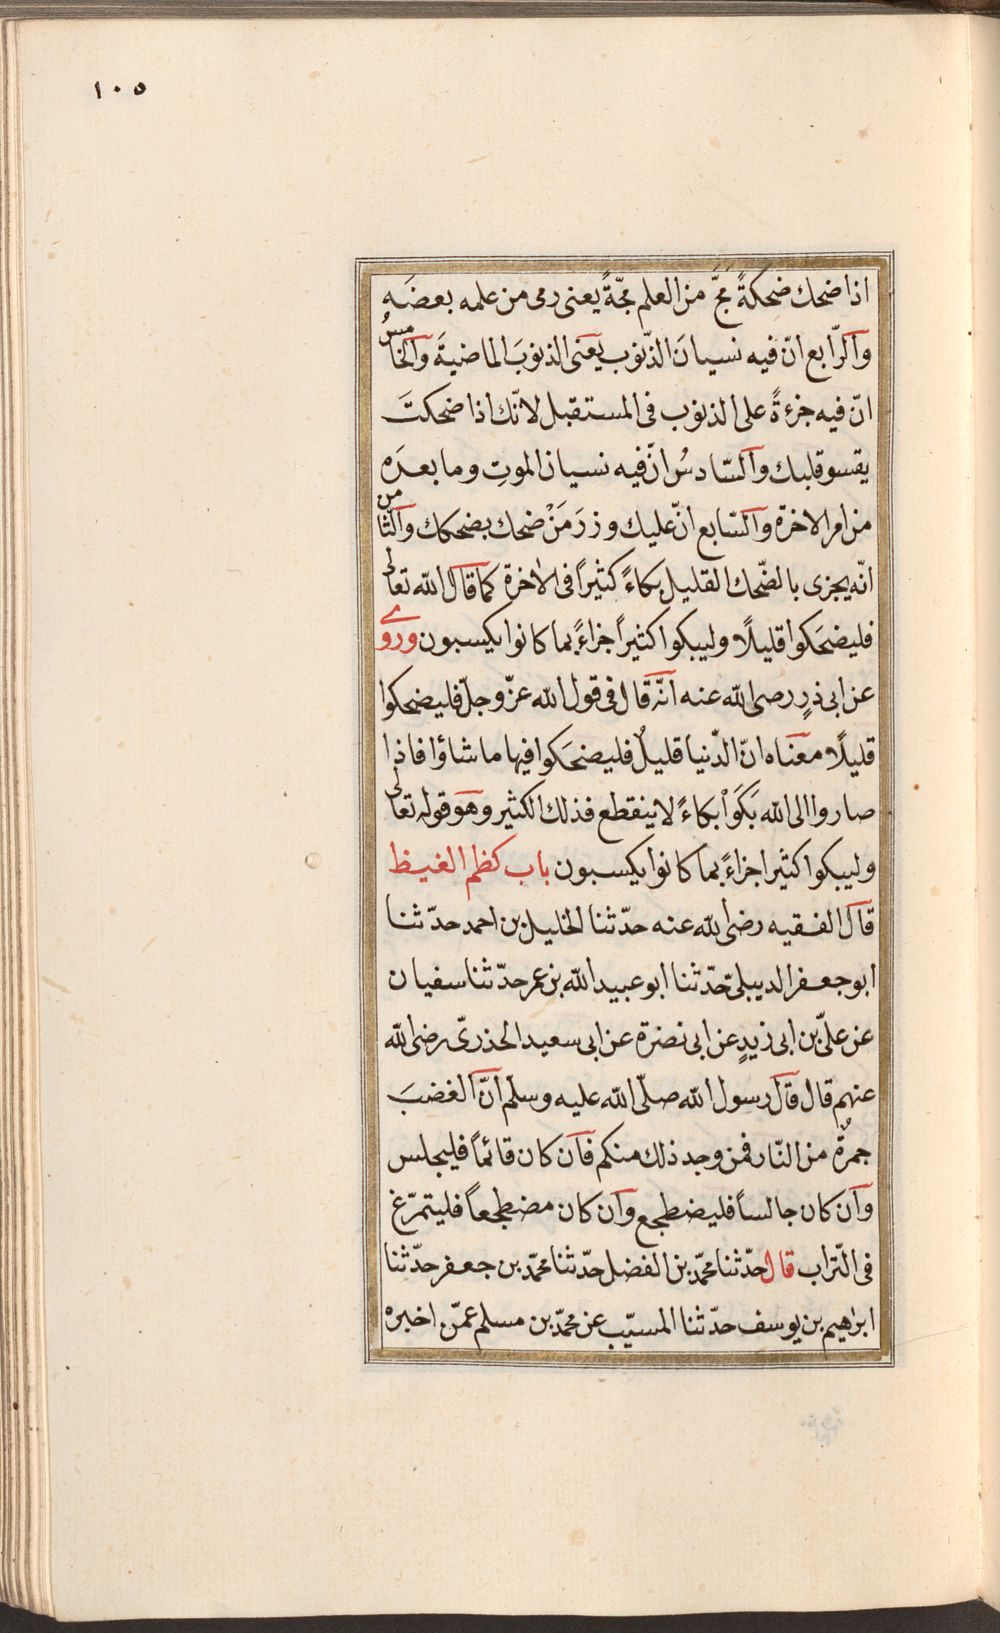 ١٠٥
اذا ضحك ضحكةً مَجَّ من العلم مجّةً يعنى رمى من علمه بعضَه
والرّابع انّ فيه نسيانَ الذّنوب يعنى الذنوبَ الماضيةَ والخامسُ
انّ فيه جزءةً على الذنوب فى المستقبل لانّك اذا ضحكتَ
يقسو قلبك والسّادسُ انّ فيه نسيان الموتِ وما بعده
من امر الاخرة والسّابع انّ عليك وزرَ مَنْ ضحك بضحكك والثامن
انّه يجزى بالضّحك القليل بكاءً كثيراً فى الاخرة كما قال الله تعالى
فليضحَكوا قليلًا وليبكوا كثيراً جزاءً بما كانوا يكسبون وروى
عن ابى ذرٍ رضى الله عنه انّه قال فى قول الله عزّ وجلّ فليضحكوا
قليلًا معناه انّ الدّنيا قليلٌ فليضحَكوا فيها ما شاؤا فاذا
صاروا الى الله بَكَوْا بكاءً لا ينقطع فذلك الكثير وهو قوله تعالى
وليبكوا كثيرا جزاءً بما كانوا يكسبون باب كظم الغيظ
قال الفقيه رضى الله عنه حدّثنا الخليل بن احمد حدّثنا
ابو جعفر الديبلىّ حدّثنا ابو عبيد الله بن عمر حدّثنا سفيان
عن علىّ بن ابى زيدٍ عن ابى نضرة عن ابى سعيد الخذرىّ رضى الله
عنهم قال قال رسول الله صلّى الله عليه وسلّم انّ الغضبَ
جمرةٌ من النّار فمن وجد ذلك منكم فان كان قائماً فليجلس
وان كان جالساً فليضطجع وان كان مضطجعاً فليتمرّغ
فى التّراب قال حدّثنا محمّد بن الفضل حدّثنا محمّد بن جعفر حدّثنا
ابرٰهيم بن يوسف حدّثنا المسيّب عن محمّد بن مسلم عمّن اخبره